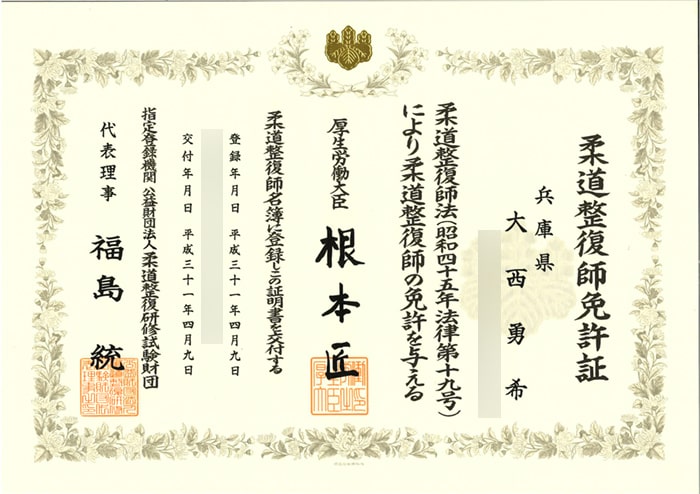 柔道整復師免許証
兵庫県
大西勇希
柔道整復師法(昭和四十五年法律第十九号)
により柔道整復師の免許を与える
厚生労働大臣 根本匠
柔道整復師名簿に登録しこの証明書を交付する
登録年月日 平成三十一年四月九日
交付年月日 平成三十一年四月九日
指定登録機関 公益財団法人柔道整復研修試験財団
代表理事 福島統